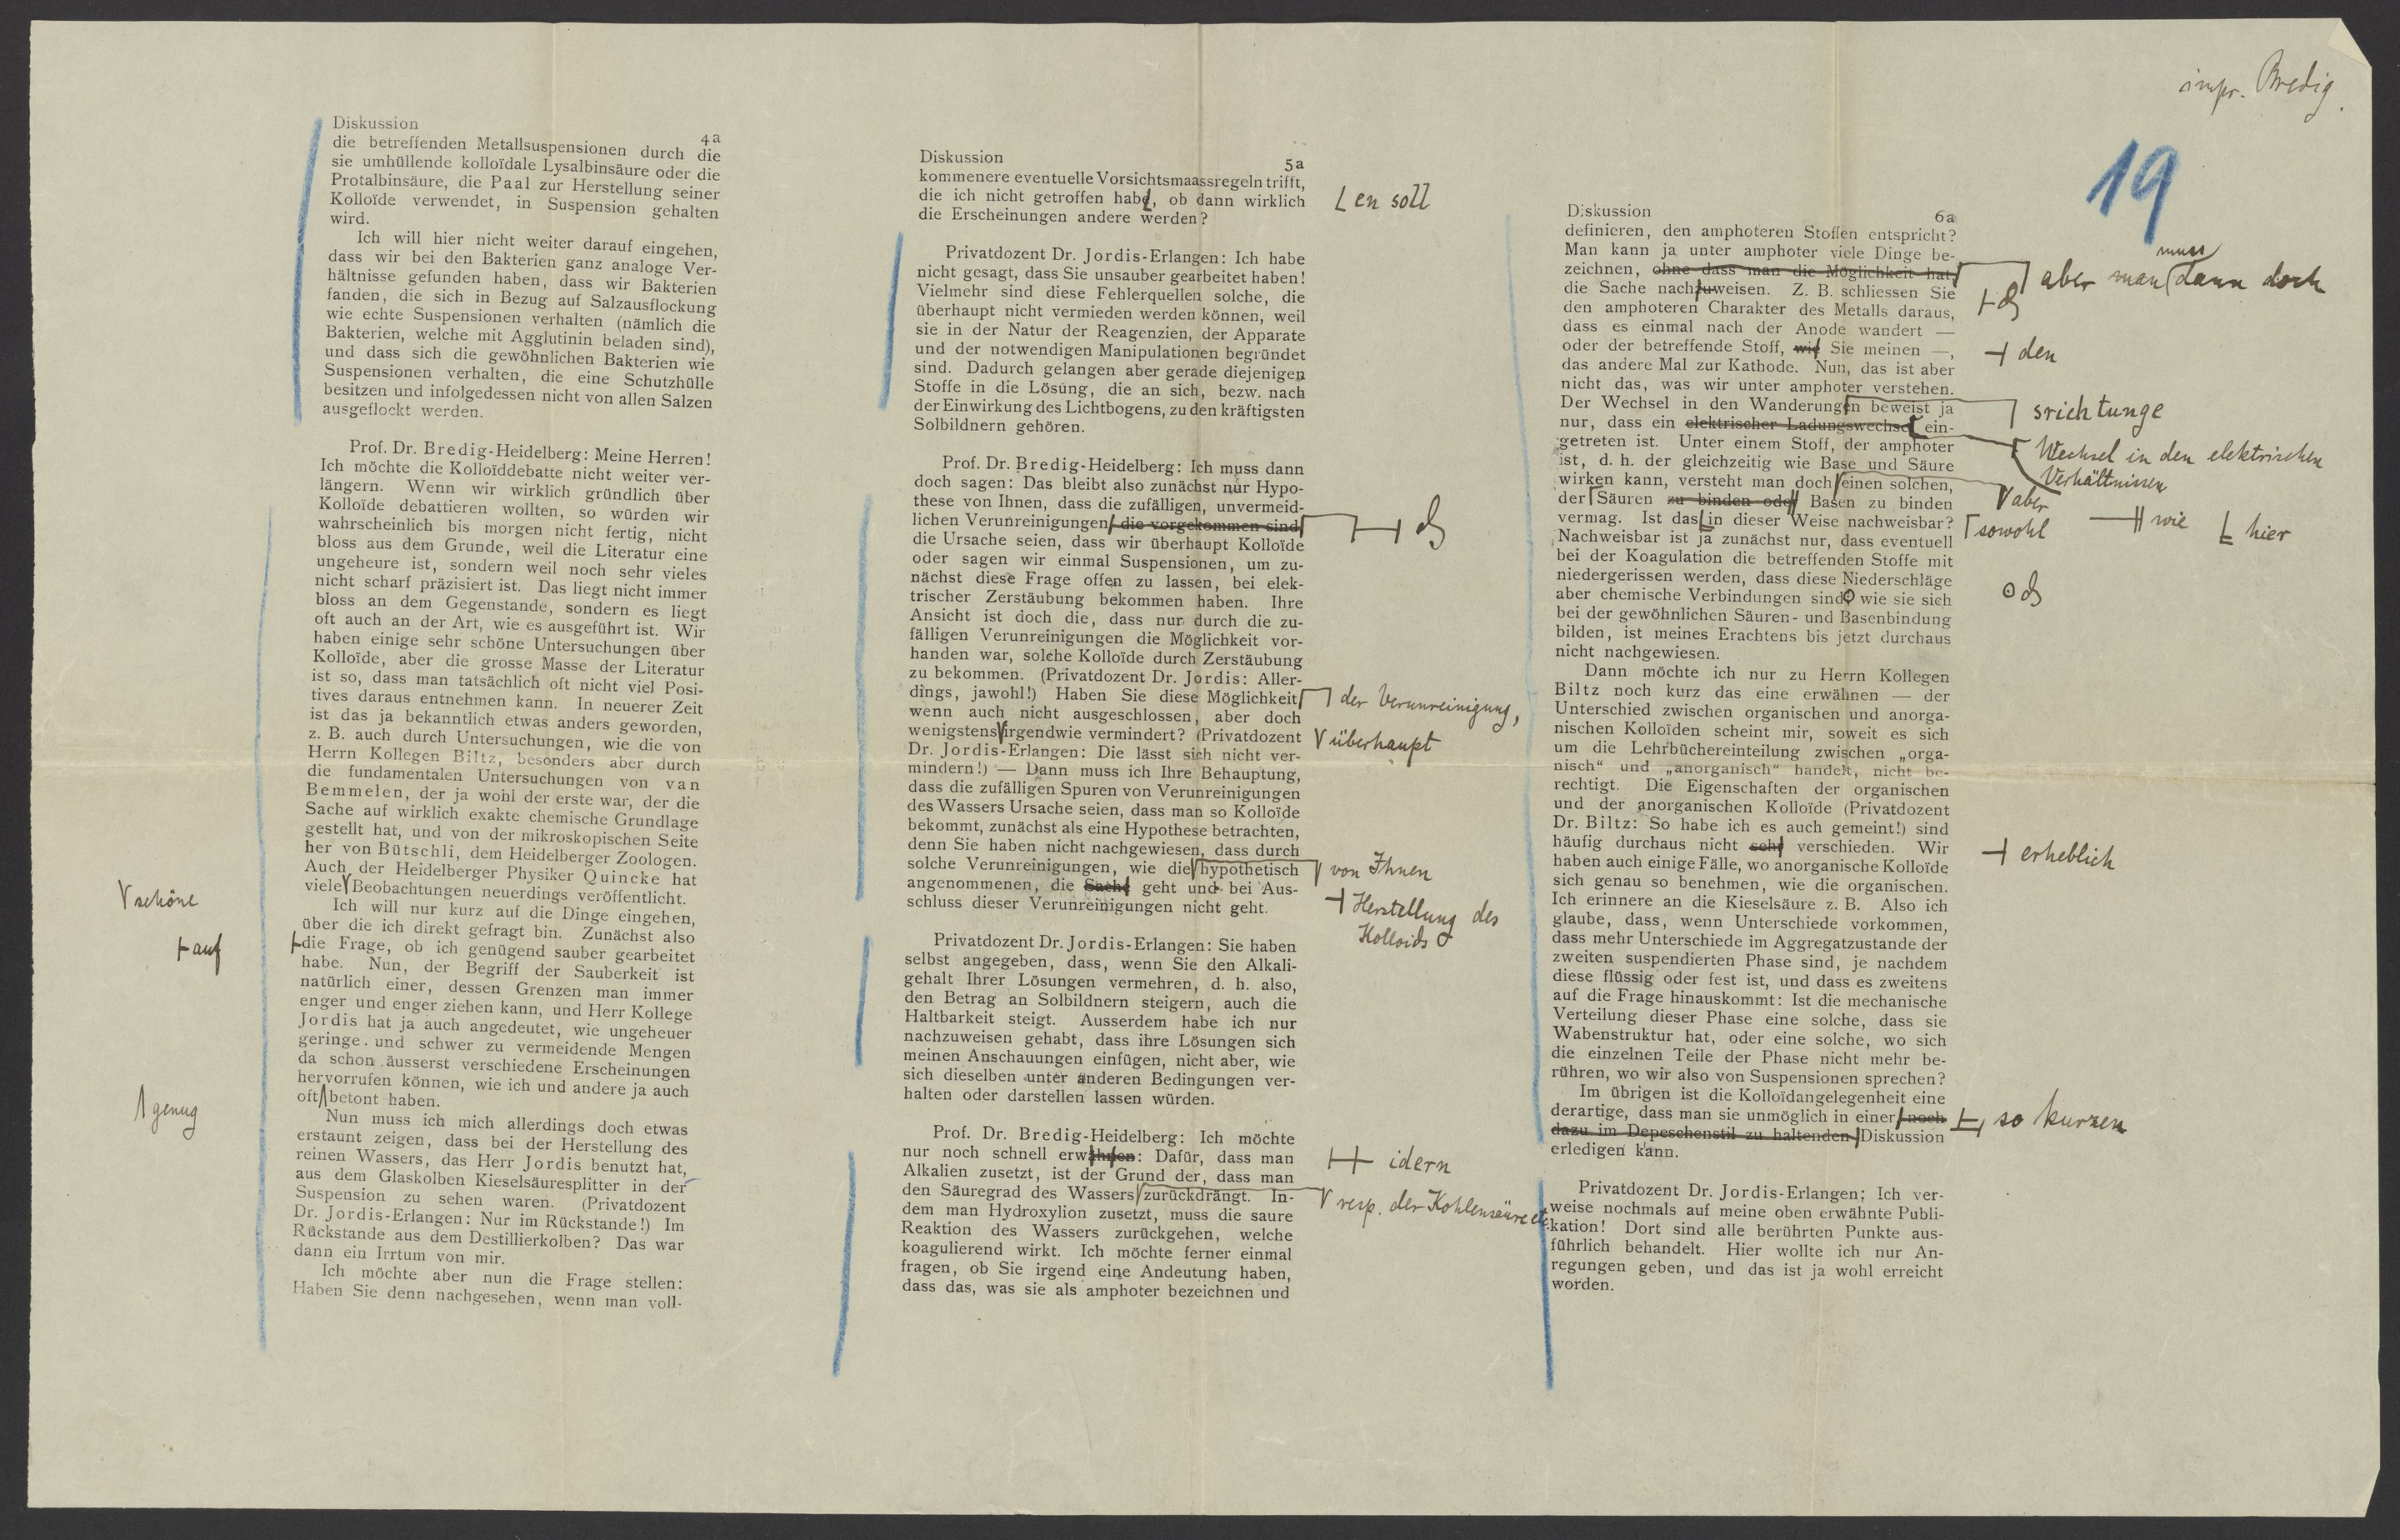 impr. Bredig.
19
Diskussion
4a
die betreffenden Metallsuspensionen durch die
sie umhüllende kolloïdale Lysalbinsäure oder die
Protalbinsäure, die Paal zur Herstellung seiner
Kolloïde verwendet, in Suspension gehalten
wird.
Ich will hier nicht weiter darauf eingehen,
dass wir bei den Bakterien ganz analoge Ver-
hältnisse gefunden haben, dass wir Bakterien
fanden, die sich in Bezug auf Salzausflockung
wie echte Suspensionen verhalten (nämlich die
Bakterien, welche mit Agglutinin beladen sind),
und dass sich die gewöhnlichen Bakterien wie
Suspensionen verhalten, die eine Schutzhülle
besitzen und infolgedessen nicht von allen Salzen
ausgeflockt werden.
Prof. Dr. Bredig-Heidelberg: Meine Herren!
Ich möchte die Kolloïddebatte nicht weiter ver-
längern. Wenn wir wirklich gründlich über
Kolloïde debattieren wollten, so würden wir
wahrscheinlich bis morgen nicht fertig, nicht
bloss aus dem Grunde, weil die Literatur eine
ungeheure ist, sondern weil noch sehr vieles
nicht scharf präzisiert ist. Das liegt nicht immer
bloss an dem Gegenstande, sondern es liegt
oft auch an der Art, wie es ausgeführt ist. Wir
haben einige sehr schöne Untersuchungen über
Kolloïde, aber die grosse Masse der Literatur
ist so, dass man tatsächlich oft nicht viel Posi-
tives daraus entnehmen kann. In neuerer Zeit
ist das ja bekanntlich etwas anders geworden,
z. B. auch durch Untersuchungen, wie die von
Herrn Kollegen Biltz, besonders aber durch
die fundamentalen Untersuchungen von van
Bemmelen, der ja wohl der erste war, der die
Sache auf wirklich exakte chemische Grundlage
gestellt hat, und von der mikroskopischen Seite
her von Bütschli, dem Heidelberger Zoologen.
Auch der Heidelberger Physiker Quincke hat
viele Beobachtungen neuerdings veröffentlicht.
schöne
Ich will nur kurz auf die Dinge eingehen,
über die ich direkt gefragt bin. Zunächst also
die Frage, ob ich genügend sauber gearbeitet
auf
habe. Nun, der Begriff der Sauberkeit ist
natürlich einer, dessen Grenzen man immer
enger und enger ziehen kann, und Herr Kollege
Jordis hat ja auch angedeutet, wie ungeheuer
geringe und schwer zu vermeidende Mengen
da schon äusserst verschiedene Erscheinungen
hervorrufen können, wie ich und andere ja auch
oft betont haben.
genug
Nun muss ich mich allerdings doch etwas
erstaunt zeigen, dass bei der Herstellung des
reinen Wassers, das Herr Jordis benutzt hat,
aus dem Glaskolben Kieselsäuresplitter in der
Suspension zu sehen waren. (Privatdozent
Dr. Jordis-Erlangen: Nur im Rückstande!) Im
Rückstande aus dem Destillierkolben? Das war
dann ein Irrtum von mir.
Ich möchte aber nun die Frage stellen:
Haben Sie denn nachgesehen, wenn man voll-
Diskussion
5a
kommenere eventuelle Vorsichtsmaassregeln trifft,
die ich nicht getroffen habe, ob dann wirklich
en soll
die Erscheinungen andere werden?
Privatdozent Dr. Jordis-Erlangen: Ich habe
nicht gesagt, dass Sie unsauber gearbeitet haben!
Vielmehr sind diese Fehlerquellen solche, die
überhaupt nicht vermieden werden können, weil
sie in der Natur der Reagenzien, der Apparate
und der notwendigen Manipulationen begründet
sind. Dadurch gelangen aber gerade diejenigen
Stoffe in die Lösung, die an sich, bezw. nach
der Einwirkung des Lichtbogens, zu den kräftigsten
Solbildnern gehören.
Prof. Dr. Bredig-Heidelberg: Ich muss dann
doch sagen: Das bleibt also zunächst nur Hypo-
these von Ihnen, dass die zufälligen, unvermeid-
lichen Verunreinigungen, die vorgekommen sind,
die Ursache seien, dass wir überhaupt Kolloïde
oder sagen wir einmal Suspensionen, um zu-
nächst diese Frage offen zu lassen, bei elek-
trischer Zerstäubung bekommen haben. Ihre
Ansicht ist doch die, dass nur durch die zu-
fälligen Verunreinigungen die Möglichkeit vor-
handen war, solche Kolloïde durch Zerstäubung
zu bekommen. (Privatdozent Dr. Jordis: Aller-
dings, jawohl!) Haben Sie diese Möglichkeit
der Verunreinigung,
wenn auch nicht ausgeschlossen, aber doch
wenigstens irgendwie vermindert? (Privatdozent
überhaupt
Dr. Jordis-Erlangen: Die lässt sich nicht ver-
mindern!) — Dann muss ich Ihre Behauptung,
dass die zufälligen Spuren von Verunreinigungen
des Wassers Ursache seien, dass man so Kolloïde
bekommt, zunächst als eine Hypothese betrachten,
denn Sie haben nicht nachgewiesen, dass durch
solche Verunreinigungen, wie die hypothetisch
von Ihnen
angenommenen, die Sache geht und bei Aus-
Herstellung des
Kolloids
schluss dieser Verunreinigungen nicht geht.
Privatdozent Dr. Jordis-Erlangen: Sie haben
selbst angegeben, dass, wenn Sie den Alkali-
gehalt Ihrer Lösungen vermehren, d. h. also,
den Betrag an Solbildnern steigern, auch die
Haltbarkeit steigt. Ausserdem habe ich nur
nachzuweisen gehabt, dass ihre Lösungen sich
meinen Anschauungen einfügen, nicht aber, wie
sich dieselben unter anderen Bedingungen ver-
halten oder darstellen lassen würden.
Prof. Dr. Bredig-Heidelberg: Ich möchte
nur noch schnell erwähnen: Dafür, dass man
idern
Alkalien zusetzt, ist der Grund der, dass man
den Säuregrad des Wassers zurückdrängt. In-
resp. der Kohlensäure etc.
dem man Hydroxylion zusetzt, muss die saure
Reaktion des Wassers zurückgehen, welche
koagulierend wirkt. Ich möchte ferner einmal
fragen, ob Sie irgend eine Andeutung haben,
dass das, was sie als amphoter bezeichnen und
Diskussion
6a
definieren, den amphoteren Stoffen entspricht?
Man kann ja unter amphoter viele Dinge be-
zeichnen, ohne dass man die Möglichkeit hat,
aber man muss dann doch
die Sache nachzuweisen. Z. B. schliessen Sie
den amphoteren Charakter des Metalls daraus,
dass es einmal nach der Anode wandert —
oder der betreffende Stoff, wie Sie meinen —,
den
das andere Mal zur Kathode. Nun, das ist aber
nicht das, was wir unter amphoter verstehen.
Der Wechsel in den Wanderungen beweist ja
srichtunge
nur, dass ein elektrischer Ladungswechsel ein-
Wechsel in den elektrischen
Verhältnissen
getreten ist. Unter einem Stoff, der amphoter
ist, d. h. der gleichzeitig wie Base und Säure
wirken kann, versteht man doch einen solchen,
aber
der Säuren zu binden oder Basen zu binden
sowohl wie hier
vermag. Ist das in dieser Weise nachweisbar?
Nachweisbar ist ja zunächst nur, dass eventuell
bei der Koagulation die betreffenden Stoffe mit
niedergerissen werden, dass diese Niederschläge
aber chemische Verbindungen sind, wie sie sich
bei der gewöhnlichen Säuren- und Basenbindung
bilden, ist meines Erachtens bis jetzt durchaus
nicht nachgewiesen.
Dann möchte ich nur zu Herrn Kollegen
Biltz noch kurz das eine erwähnen — der
Unterschied zwischen organischen und anorga-
nischen Kolloïden scheint mir, soweit es sich
um die Lehrbüchereinteilung zwischen „orga-
nisch“ und „anorganisch“ handelt, nicht be-
rechtigt. Die Eigenschaften der organischen
und der anorganischen Kolloïde (Privatdozent
Dr. Biltz: So habe ich es auch gemeint!) sind
häufig durchaus nicht sehr verschieden. Wir
erheblich
haben auch einige Fälle, wo anorganische Kolloïde
sich genau so benehmen, wie die organischen.
Ich erinnere an die Kieselsäure z. B. Also ich
glaube, dass, wenn Unterschiede vorkommen,
dass mehr Unterschiede im Aggregatzustande der
zweiten suspendierten Phase sind, je nachdem
diese flüssig oder fest ist, und dass es zweitens
auf die Frage hinauskommt: Ist die mechanische
Verteilung dieser Phase eine solche, dass sie
Wabenstruktur hat, oder eine solche, wo sich
die einzelnen Teile der Phase nicht mehr be-
rühren, wo wir also von Suspensionen sprechen?
Im übrigen ist die Kolloïdangelegenheit eine
derartige, dass man sie unmöglich in einer noch
so kurzen
dazu im Depeschenstil zu haltenden Diskussion
erledigen kann.
Privatdozent Dr. Jordis-Erlangen: Ich ver-
weise nochmals auf meine oben erwähnte Publi-
kation! Dort sind alle berührten Punkte aus-
führlich behandelt. Hier wollte ich nur An-
regungen geben, und das ist ja wohl erreicht
worden.